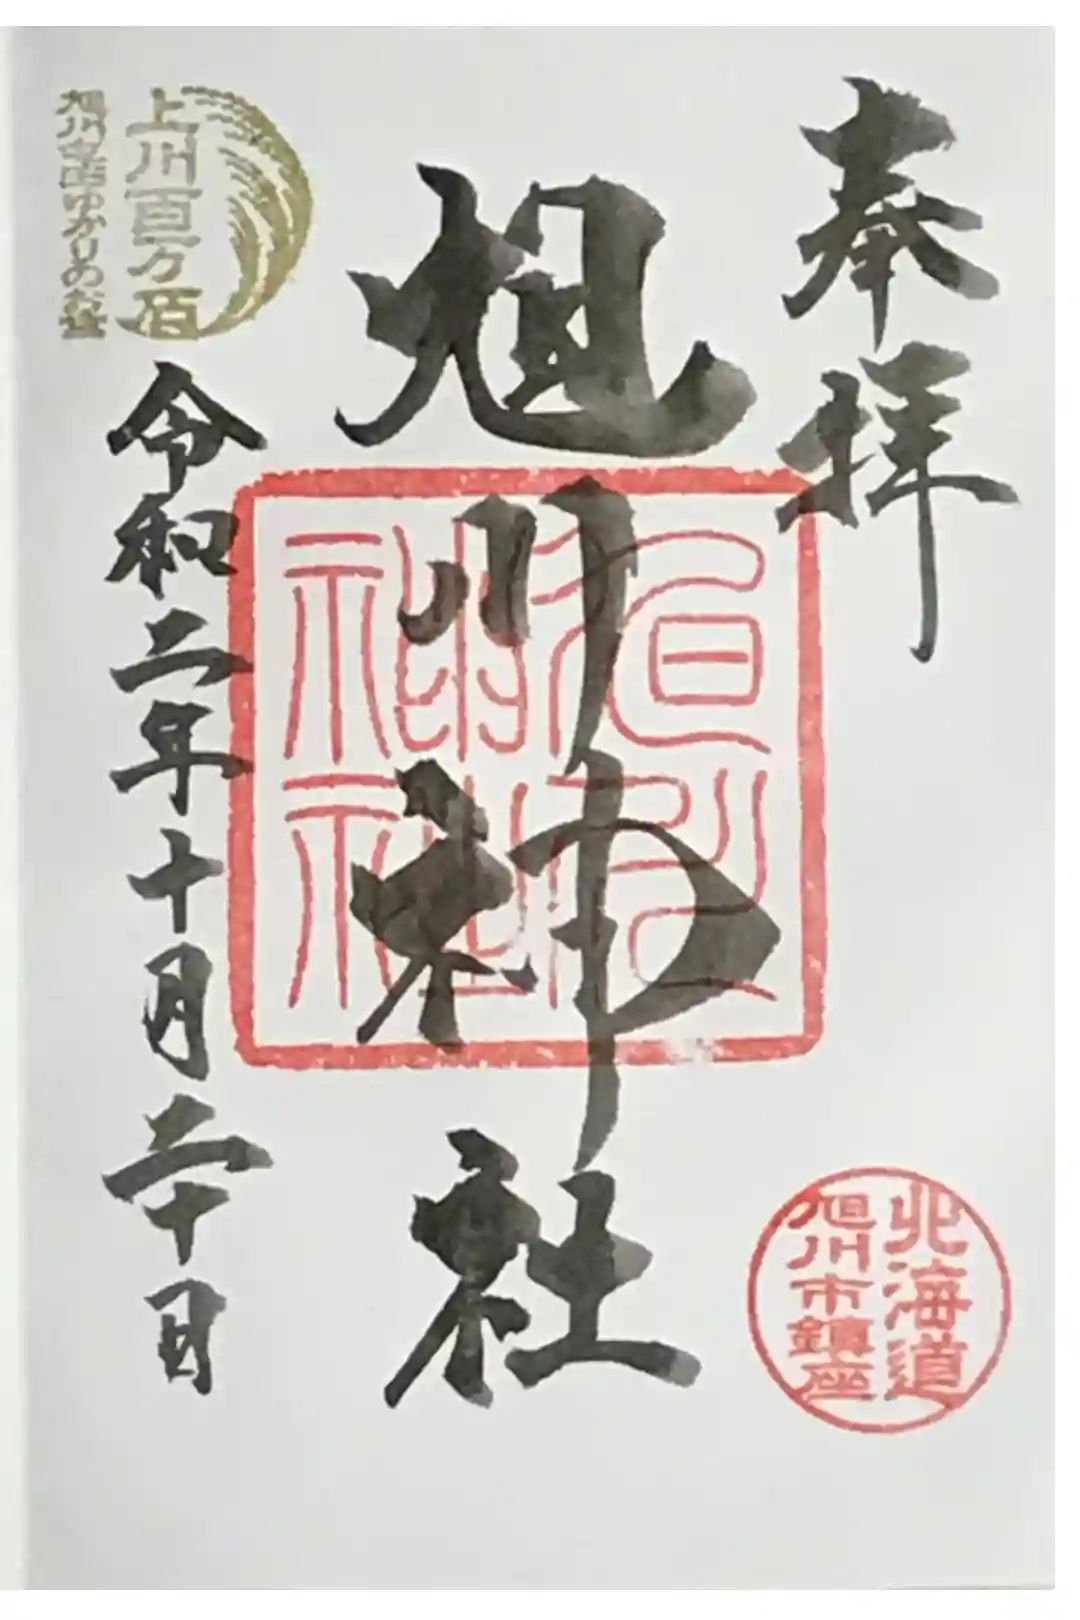 奉拝
旭川神社
旭川神社
上川百万石
旭川
ゆかりのお
令和二年十月二十日
北海道
旭川市鎮座